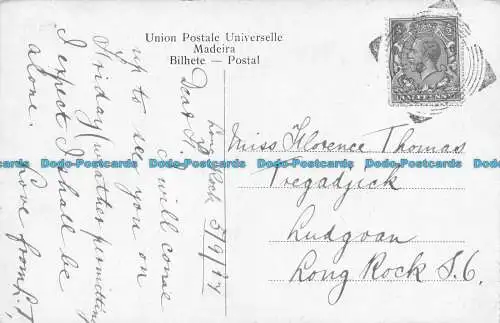 Union Postale Universelle
Madeira
Bilhete — Postal
Long Rock
5/9/17
Dear
I will come
up to see you on
Friday (weather permitting
I expect I shall be
alone.
Love from
Miss Florence Thomas
Ludgvan
Long Rock S.O.
Dodo-Postcards Dodo-Postcards Dodo-Postcards Dodo-Postcards